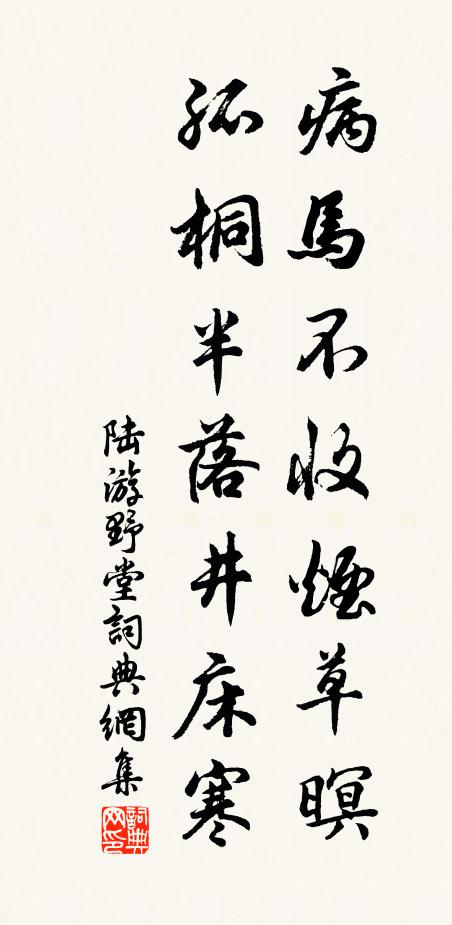 病馬不收煙草暝
孤桐半落井床寒
陆游野堂詞典網集
詞典网印